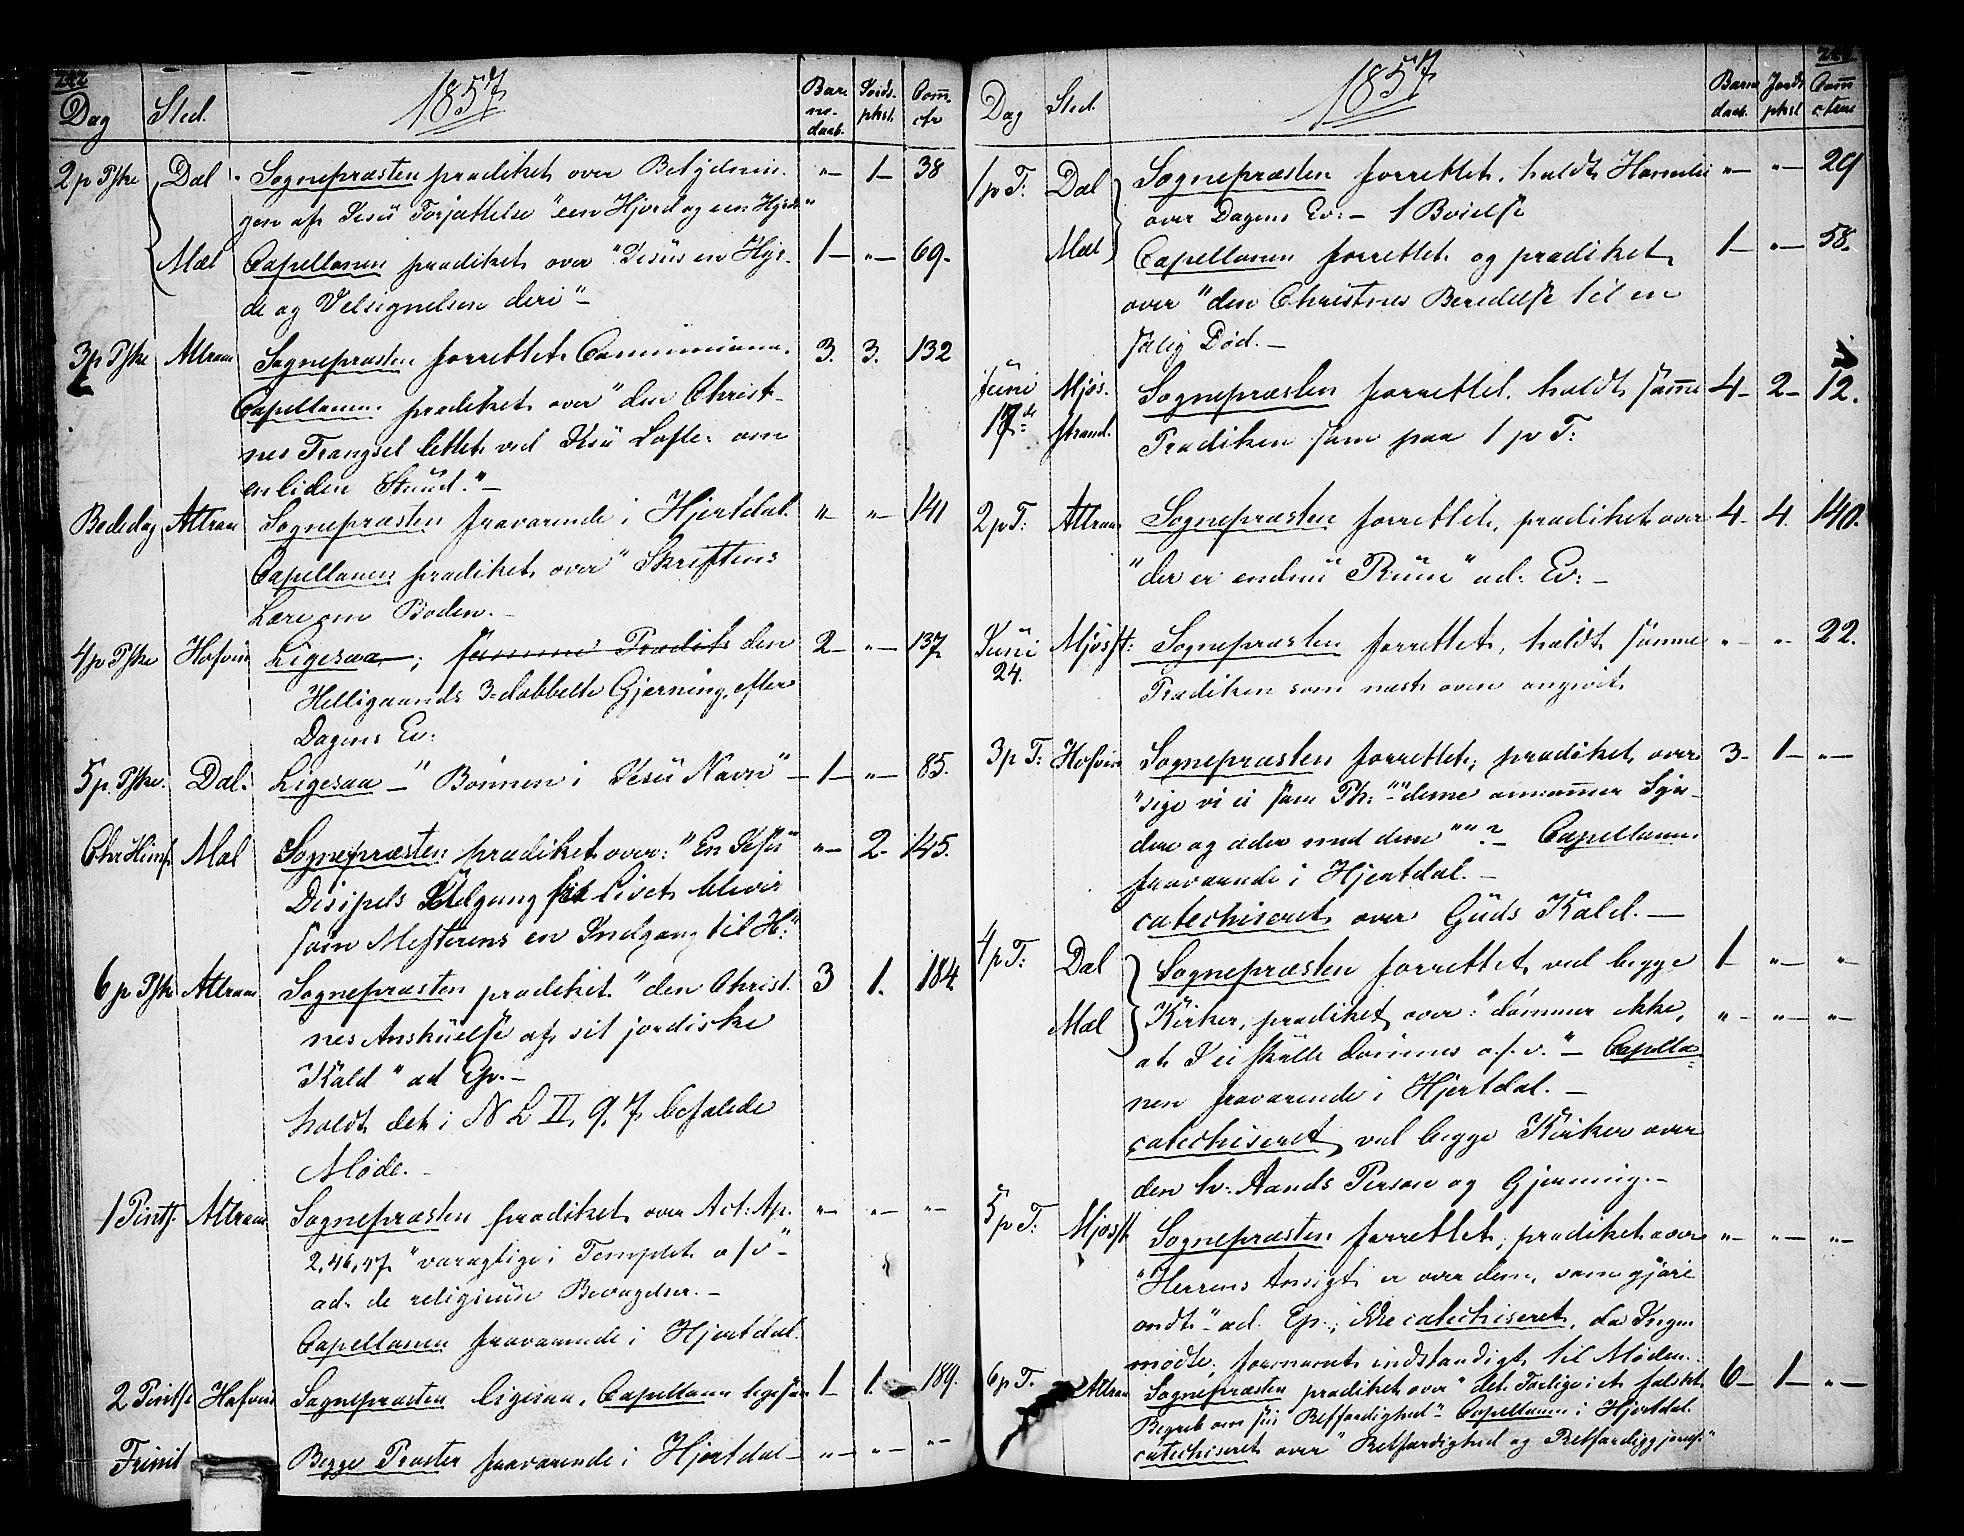 1857
Dag Sted. Bar- Jords- Comm-
ne- pkst. ctr
daab.
2 p Pske Dæl Sognepræsten prædiket over Betydnin- " 1 38
gen af Jesu Forjættelse "een Hjord og een Hyrde"
Mæl Capellanen prædiket over "Jesus en Hyr- 1 " 69.
de og Velsignelsen deri"
3 p Pske Attraa Sognepræsten forrettet Communionen. 3. 3. 132
Capellanen prædiket over "den Christ-
nes Trængsel lettet ved Jesu Løfte: om
en liden Stund."
Bededag Attraa Sognepræsten fraværende i Hjertdal. " " 141
Capellanen prædiket over "Skriftens
Lære om Boden.
4 p Pske Hofvin Ligesaa; samme Prædik den 2 " 137
Helligaands 3-dobbelte Gjerning, efter
Dagens Ev:
5 p. Pske. Dal. Ligesaa "Bønnen i Jesu Navn" 1 " 85.
Chr Himf. Mæl Sognepræsten prædiket over: "En Jesu " 2. 145.
Disipels Udgang fra Livet bliver
som Mesterens en Indgang til H:"
6 p Pske Attraa Sognepræsten prædiket "den Christ- 3 1. 184
nes Anskuelse af sit jordiske
Kald" ad Ep.
holdt det i N L II, 9, 7, befalede
Møde.
1 Pintsd. Attraa Sognepræsten prædiket over Act: Ap. " " "
2,46,47 "varagtige i Templet o s v"
ad. de religieuse Bevægelser.
Capellanen fraværende i Hjertdal.
2 Pintse Hofvin Sognepræsten ligesaa, Capellanen ligesaa 1 1. 189.
Trinit Begge Præster fraværende i Hjertdal " " "
1857
Dag Sted. Barne Jords Comm
daab. pkst ctrne
1 p T: Dæl Sognepræsten forrettet, holdt Homilie " " 29
over Dagens Ev: 1 Vielse
Mæl Capellanen forrettet og prædiket 1 " 58.
over "den Christnes Beredelse til en
salig Død.
Juni Mjøs- Sognepræsten forrettet, holdt samme 4 2 12.
17de strand. Prædiken som paa 1 p T:
2 p T: Attraa Sognepræsten forrettet, prædiket over 4 4. 140.
"der er endnu Rum" ad. Ev:
Juni Mjøsst: Sognepræsten forrettet, holdt samme " " 22.
24. Prædiken som næst oven angivet.
3 p T: Hofvin Sognepræsten forrettet, prædiket over 3 1 "
"sige vi ei som Ph: "denne annammer Syn-
dere og æder med dem""? Capellanen
fraværende i Hjertdal.
catechiseret over Guds Kald.
4 p T: Dæl Sognepræsten forrettet ved begge 1 " "
Mæl Kirker, prædiket over: "dømmer ikke, " " "
at I ei skulle dømmes o.s.v." Capella-
nen fraværende i Hjertdal.
catechiseret ved begge Kirker over
den h. Aands Person og Gjerning.
5 p T: Mjøsst Sognepræsten forrettet, prædiket over " " "
"Herrens Ansigt er over dem, som gjøre
ondt" ad. Ep.; ikke catechiseret, da Ingen
mødte; formanet indstændigt til Møden.
6 p T. Attraa Sognepræsten prædiket over "det Farlige i et falskt 6 1 "
Begreb om sin Retfærdighed". Capellanen i Hjertdal.
catechiseret over "Retfærdighed og Retfærdiggjørels."